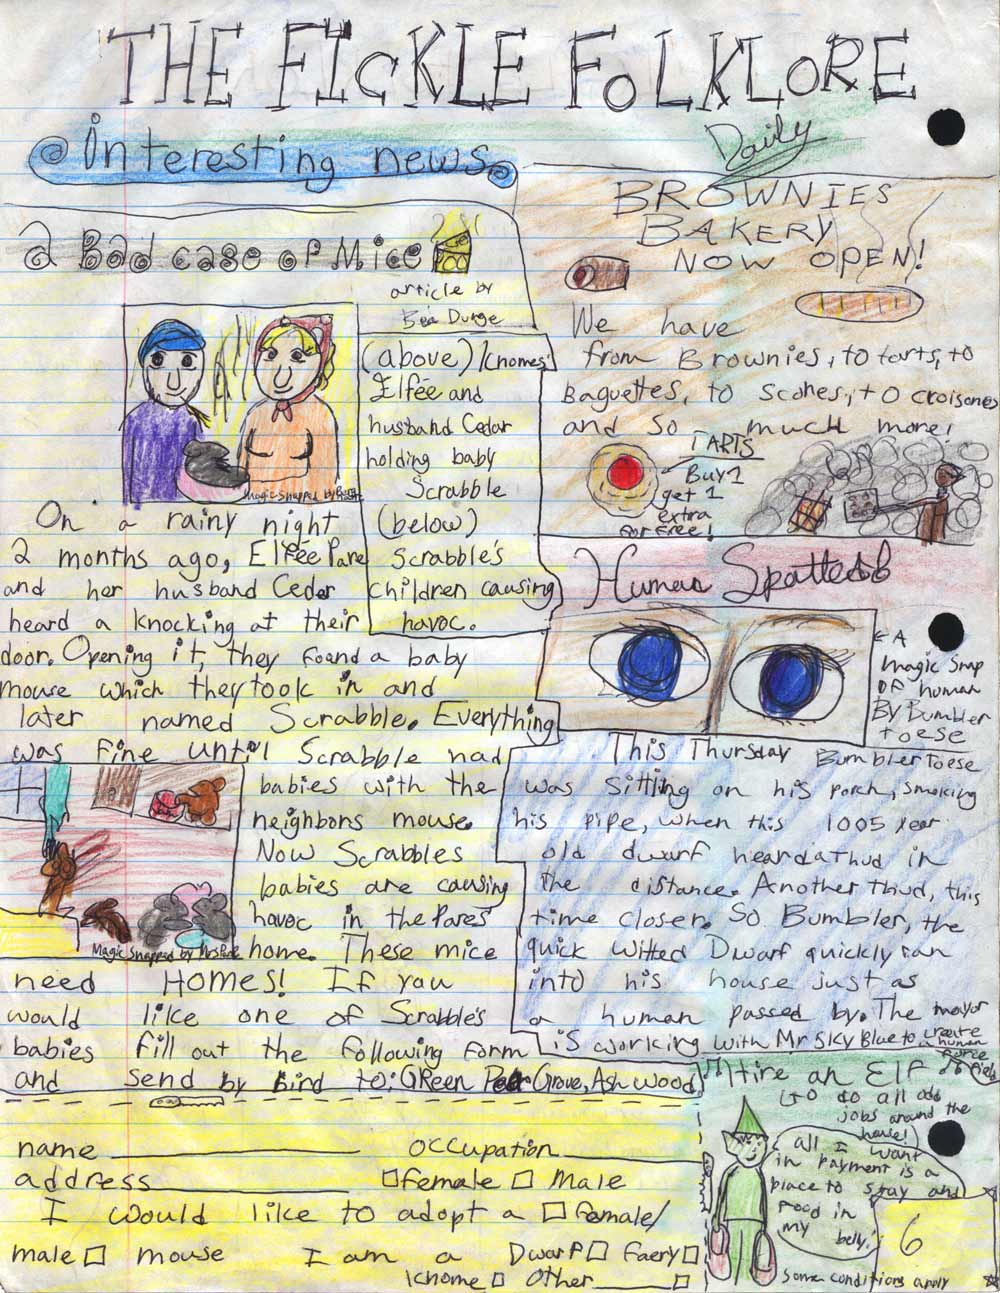 THE FICKLE FOLKLORE
Daily
interesting news
a Bad case of Mice
article by
Bea Durge
(above) Knomes'
Elfée and
husband Cedar
holding baby
Scrabble
(below)
Scrabble's
children causing
havoc.
Magic snapped by
On a rainy night
2 months ago, Elfée Pare
and her husband Ceder
heard a knocking at their
door. Opening it, they found a baby
mouse which they took in and
later named Scrabble. Everything
was fine until Scrabble had
babies with the
neighbors mouse.
Now Scrabbles
babies are causing
havoc in the Pares'
home. These mice
Magic snapped by Mrs Pare
need HOMES! If you
would like one of Scrabble's
babies fill out the following form
and send by bird to: GReen Grove, Ash wood
name
occupation
address
female Male
I would like to adopt a female/
male mouse I am a Dwarf Faery
Knome other
BROWNIES
BAKERY
NOW OPEN!
We have
from Brownies, to tarts, to
Baguettes, to scones, to croisones
and so much more!
TARTS
Buy 1
get 1
extra
for free!
Human Spotted
A
magic snap
of human
By Bumbler
toese
This Thursday Bumbler Toese
was sitting on his porch, smoking
his pipe, when this 1005 year
old dwarf heard a thud in
the distance. Another thud, this
time closer. So Bumbler, the
quick witted Dwarf quickly ran
into his house just as
a human passed by. The mayor
is working with Mr Sky Blue to create
a human
force
field
Hire an Elf
to do all odd
jobs around the
house!
all I want
in payment is a
place to stay and
food in
my belly.
some conditions apply
6